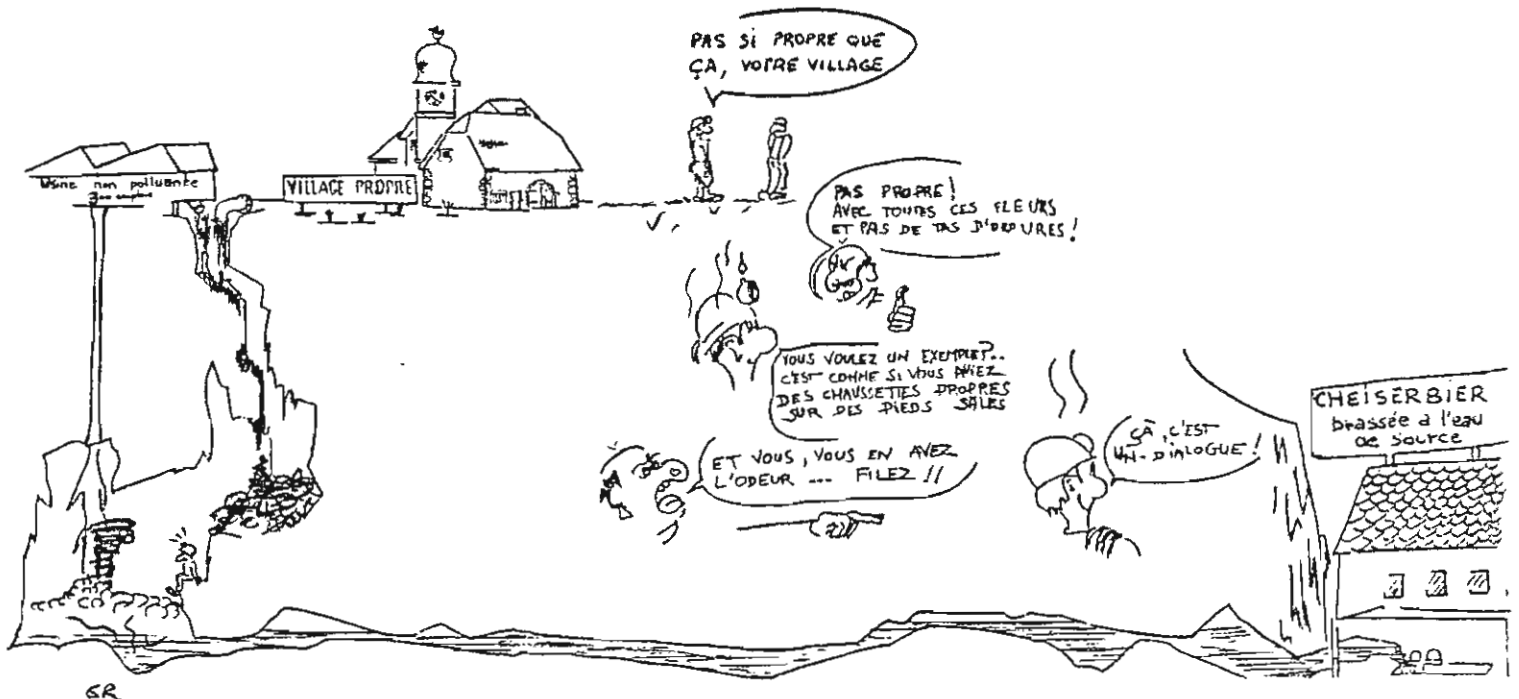 PAS Si PROPRE QUE
ÇA, VOTRE VILLAGE
Usine non polluante
VILLAGE PROPRE
PAS PROPRE!
AVEC TOUTES CES FLEURS
ET PAS DE TAS D'ORDURES!
VOUS VOULEZ UN EXEMPLE?..
C'EST COMME SI VOUS AVIEZ
DES CHAUSSETTES PROPRES
SUR DES PIEDS SALES
ET VOUS, VOUS EN AVEZ
L'ODEUR ... FILEZ !!
ÇA, C'EST
UN-DIALOGUE!
CHEISERBIER
brassée a l'eau
de source
GR